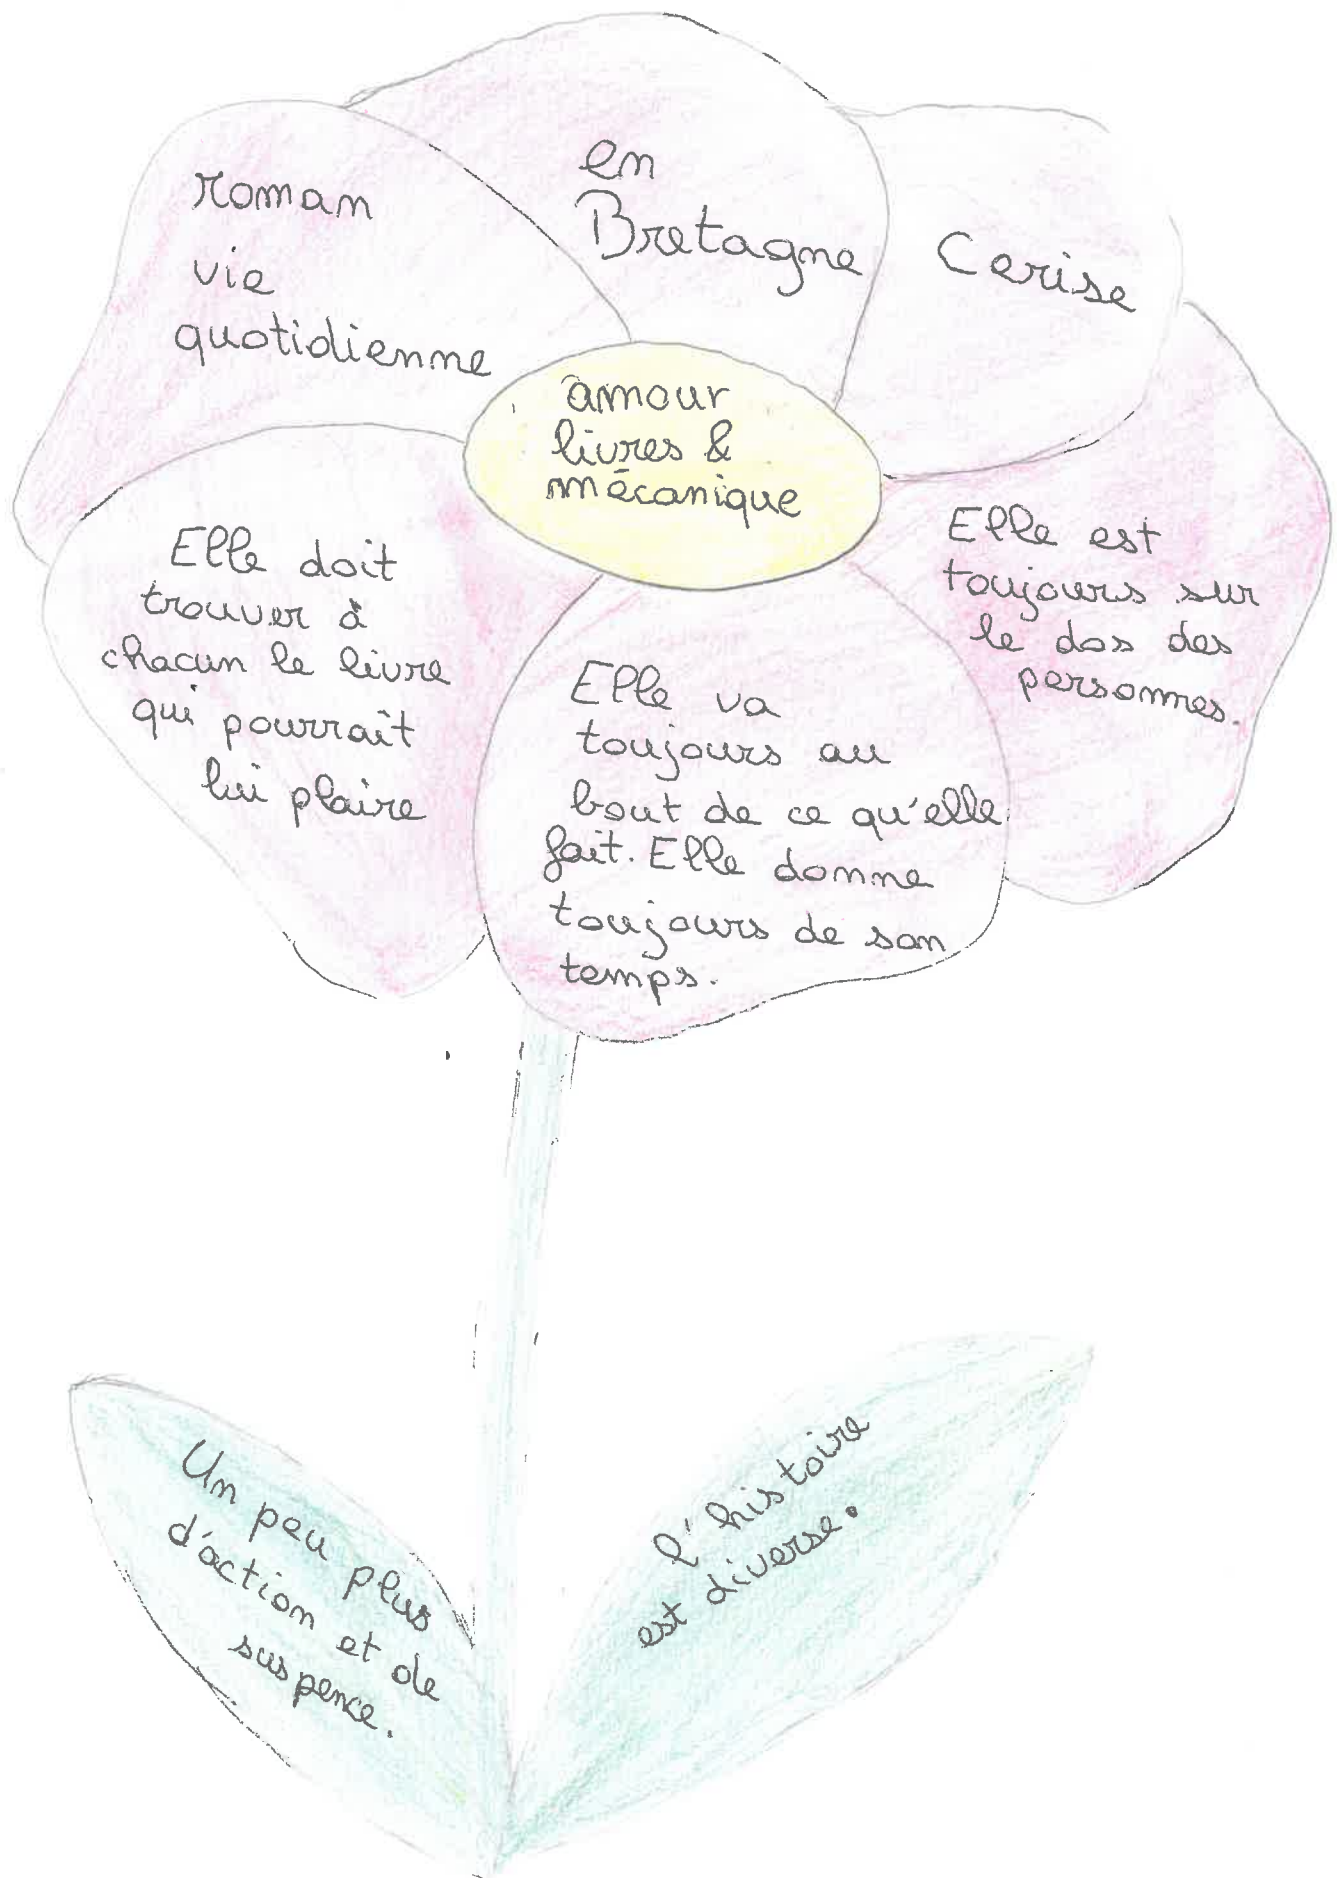 roman
vie
quotidienne
en
Bretagne
Cerise
amour
livres &
mécanique
Elle doit
trouver à
chacun le livre
qui pourrait
lui plaire
Elle va
toujours au
bout de ce qu'elle
fait. Elle donne
toujours de son
temps.
Elle est
toujours sur
le dos des
personnes.
Un peu plus
d'action et de
suspence.
l'histoire
est diverse.